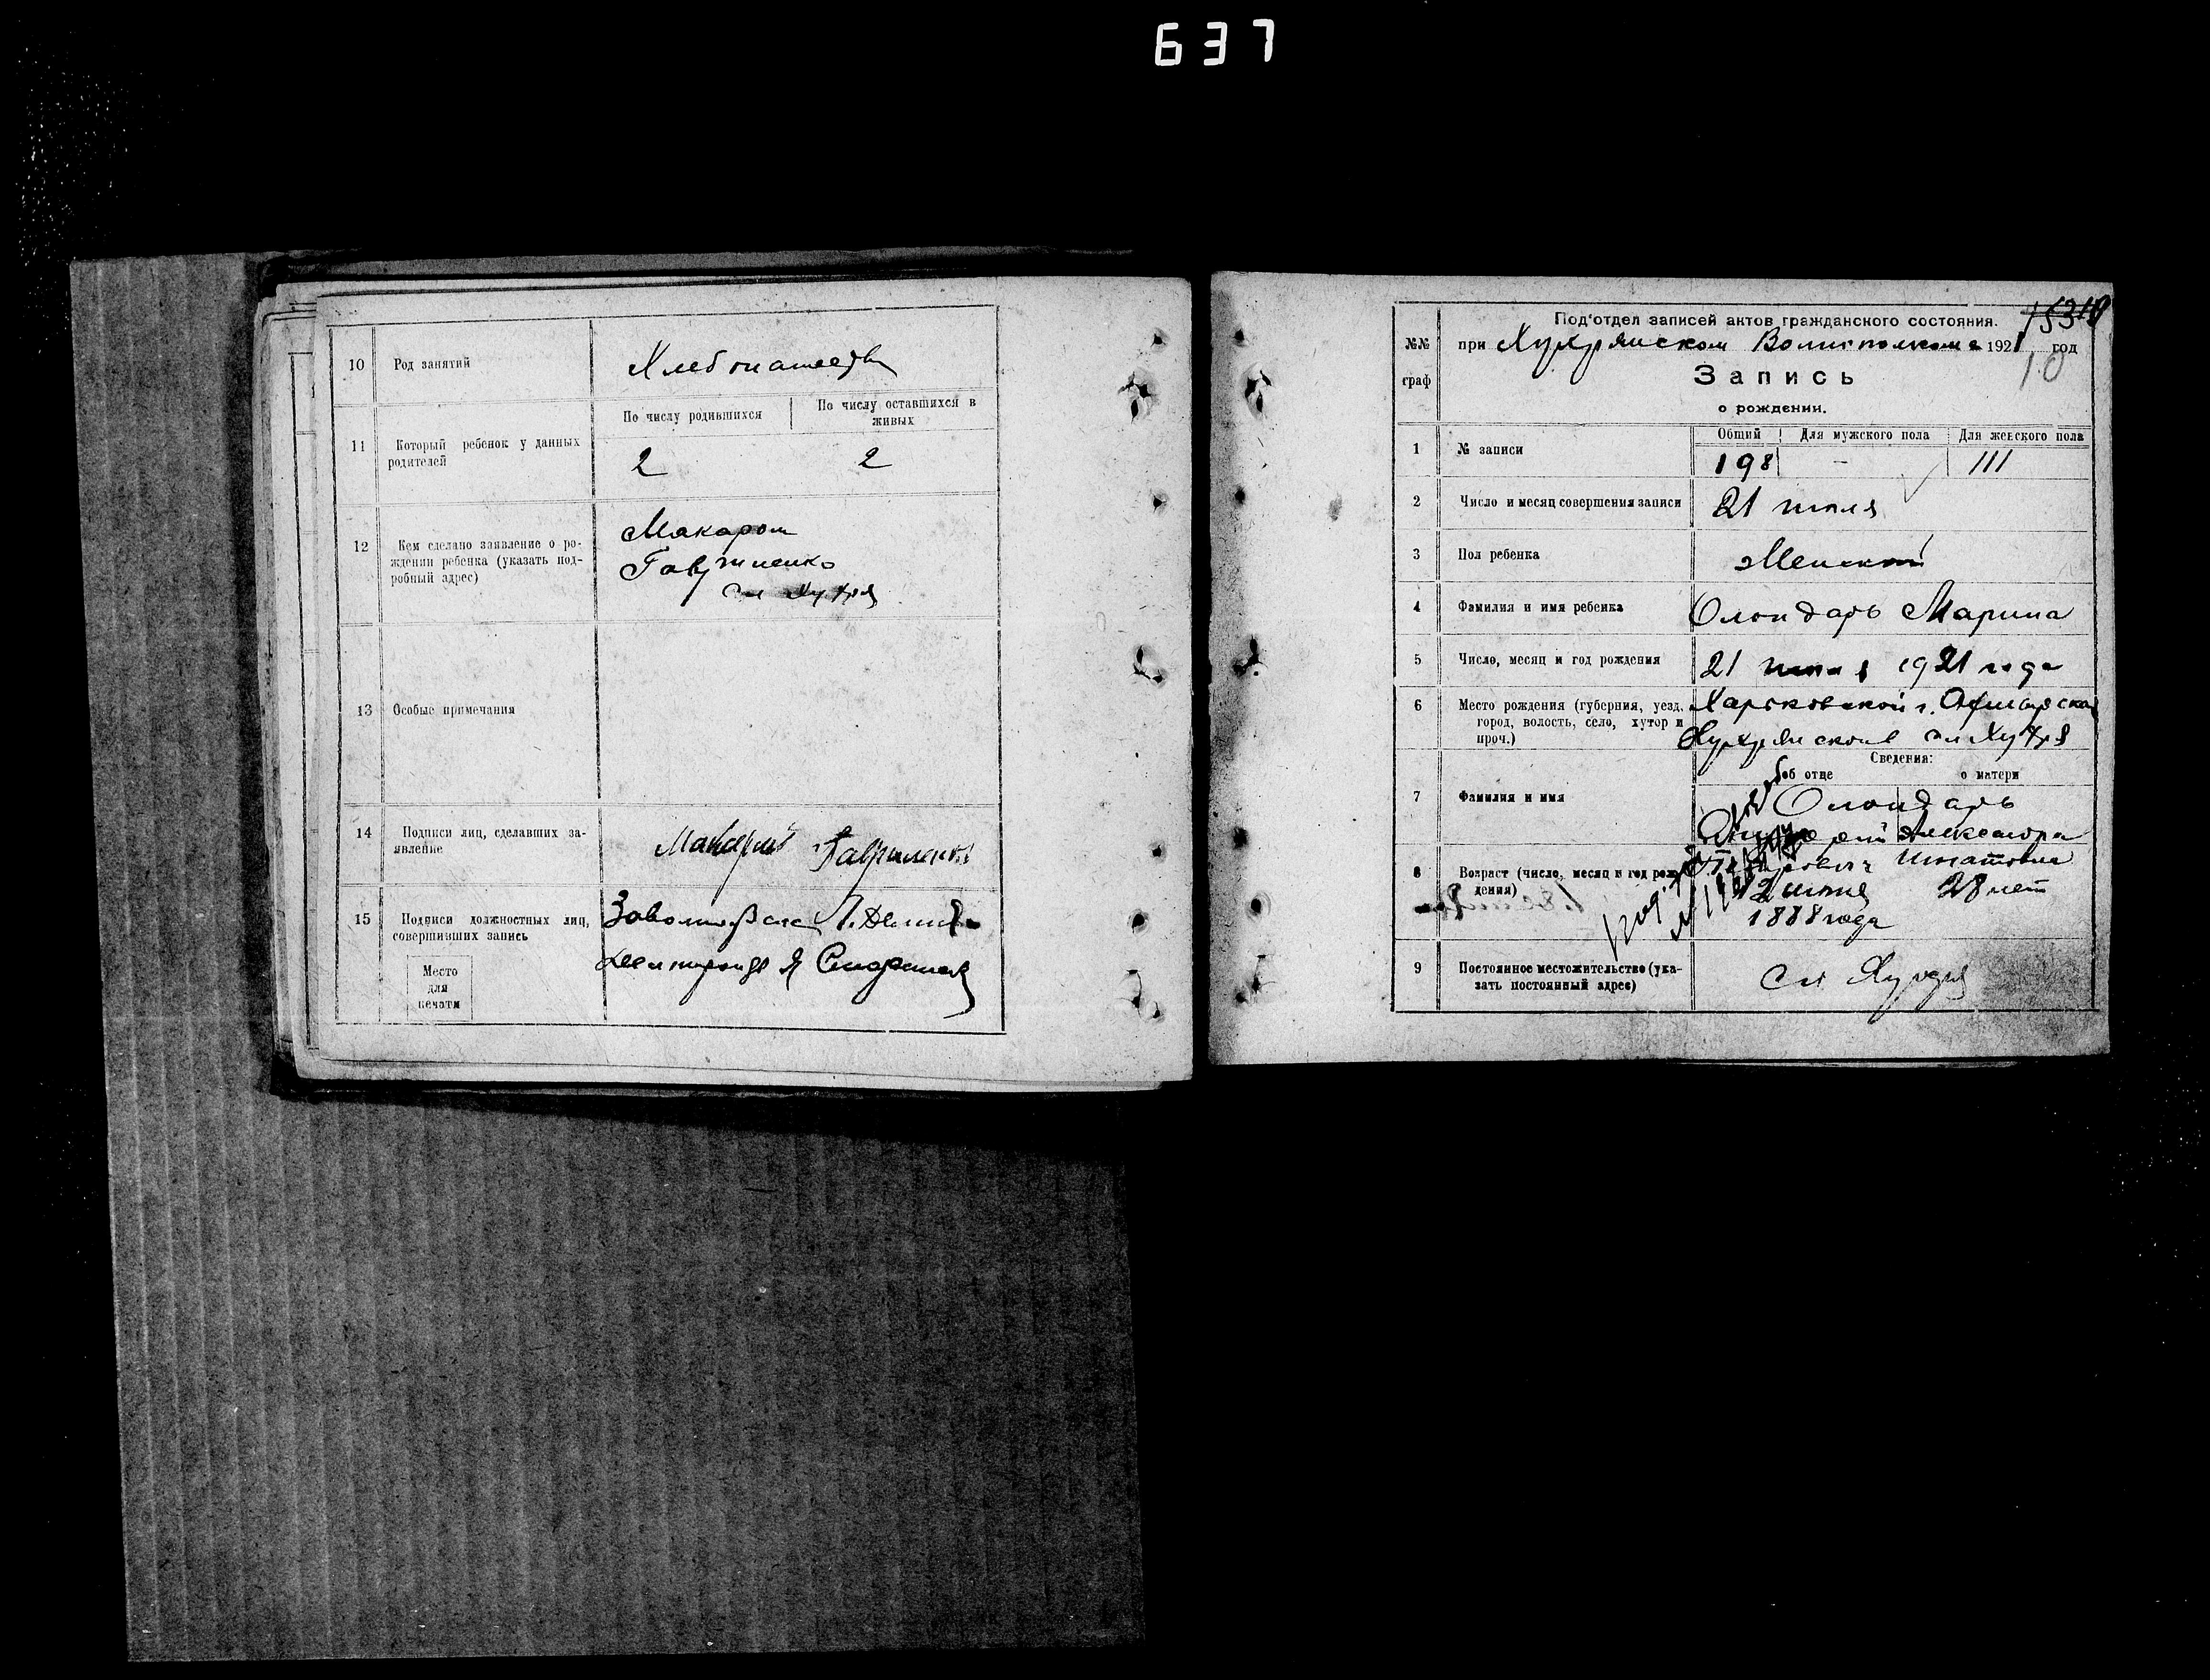 637
10 Род занятий Хлебопашество
11 Который ребенок у данных родителей
По числу родившихся По числу оставшихся в живых
2 2
12 Кем сделано заявление о ро-
ждении ребенка (указать под-
робный адрес)
Макаром
Гавриленко
сл Хухря
13 Особые примечания
14 Подписи лиц, сделавших за-
явление
Макарий Гавриленко
15 Подписи должностных лиц,
совершивших запись
Место
для
печати
Под'отдел записей актов гражданского состояния.
№№ граф
при Хухрянском Волисполкоме 1921 год
10
Запись
о рождении.
Общий Для мужского пола Для женского пола
1 № записи 198 - 111
2 Число и месяц совершения записи 21 июля
3 Пол ребенка Женский
4 Фамилия и имя ребенка Олондарь Марина
5 Число, месяц и год рождения 21 1921 года
6 Место рождения (губерния, уезд,
город, волость, село, хутор и
проч.)
Харьковской г.
Хухрянской сл Хухря
Сведения:
об отце о матери
7 Фамилия и имя
Олондарь
Александра
Игнатовна
8 Возраст (число, месяц и год рож-
дения)
2 28 лет
1888 года
9 Постоянное местожительство (ука-
зать постоянный адрес)
сл Хухря